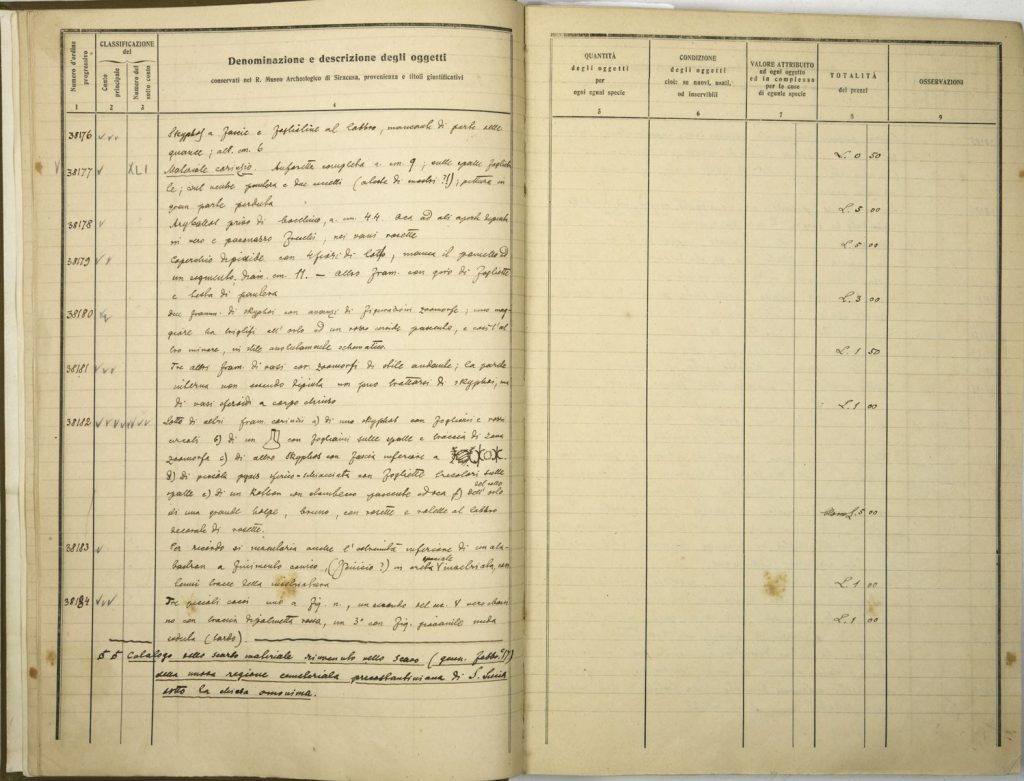 Numero d'ordine progressivo
CLASSIFICAZIONE del
Conto principale
Numero del sotto conto
Denominazione e descrizione degli oggetti
conservati nel R. Museo Archeologico di Siracusa, provenienza e titoli giustificativi
QUANTITÀ degli oggetti per ogni egual specie
CONDIZIONE degli oggetti cioè: se nuovi, usati, od inservibili
VALORE ATTRIBUITO ad ogni oggetto ed in complesso per le cose di eguale specie
TOTALITÀ dei prezzi
OSSERVAZIONI
1 2 3 4 5 6 7 8 9
38176 Skyphos a fascie e foglioline al labbro, mancante di parte delle
guance; alt. cm. 6 L. 0 50
38177 XLI Materiale corinzio. Anforetta completa a. cm 9; sulle spalle
sul ventre pantera e due uccelli; pittura in
gran parte perduta L. 5 00
38178 Aryballos privo di bocchino, a. cm. 4.4 oca ad ali aperte
in nero e paonazzo; nei vani rosette L. 5 00
38179 Coperchio di pisside con 4 fiori di loto, manca il pomello ed
un segmento, diam. cm. 11. — Altro fram. con giro di fogliette
e testa di pantera L. 3 00
38180 Due framm. di skyphos con avanzi di figurazioni zoomorfe; uno mag-
giore ha triglifi all'orlo ed un rosso pascente, e così l'al
tro minore, in stile assolutamente schematico L. 1 50
38181 Tre altri fram. di vasi cor. zoomorfi di stile andante; la parete
interna non essendo dipinta non può trattarsi di skyphos, ma
di vasi sferoidi a corpo chiuso L. 1 00
38182 Lotto di altri fram. corinzi a) di uno skyphos con fogliami e rosso
b) di un con fogliami sulle spalle e traccia di zona
zoomorfa c) di altro skyphos con fascia inferiore a
d) di piccola pyxis sferico-schiacciata con fogliette tricolori sulle
spalle e) di un Kothon con pascente ed oca f) dell'orlo
del collo
di una grande, bruno, con rosette al labbro
decorato di rosette. L. 5 00
38183 Per ricordo si inventaria anche l'estremità inferiore di un ala-
bastron a finimento conico, in creta inverniciata, con
speciale
tenui tracce della L. 1 00
38184 Tre piccoli cocci uno a fig. n., un secondo del sec. V
no con traccia di palmetta rossa, un 3° con fig. giovanile nuda
seduta (tardo). L. 1 00
§ 5 Catalogo dello scarso materiale rinvenuto nello scavo
della nuova regione cemeteriale precostantiniana di S. Lucia
sotto la chiesa omonima.